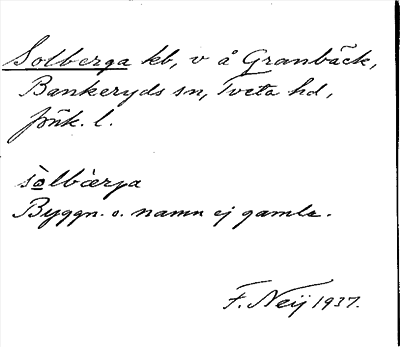 Solberga kb, v å Granbäck,
Bankeryds sn, Tveta hd,
Jönk. l.
sòlbàrja
Byggn. o. namn ej gamla.
F. Neij 1937.